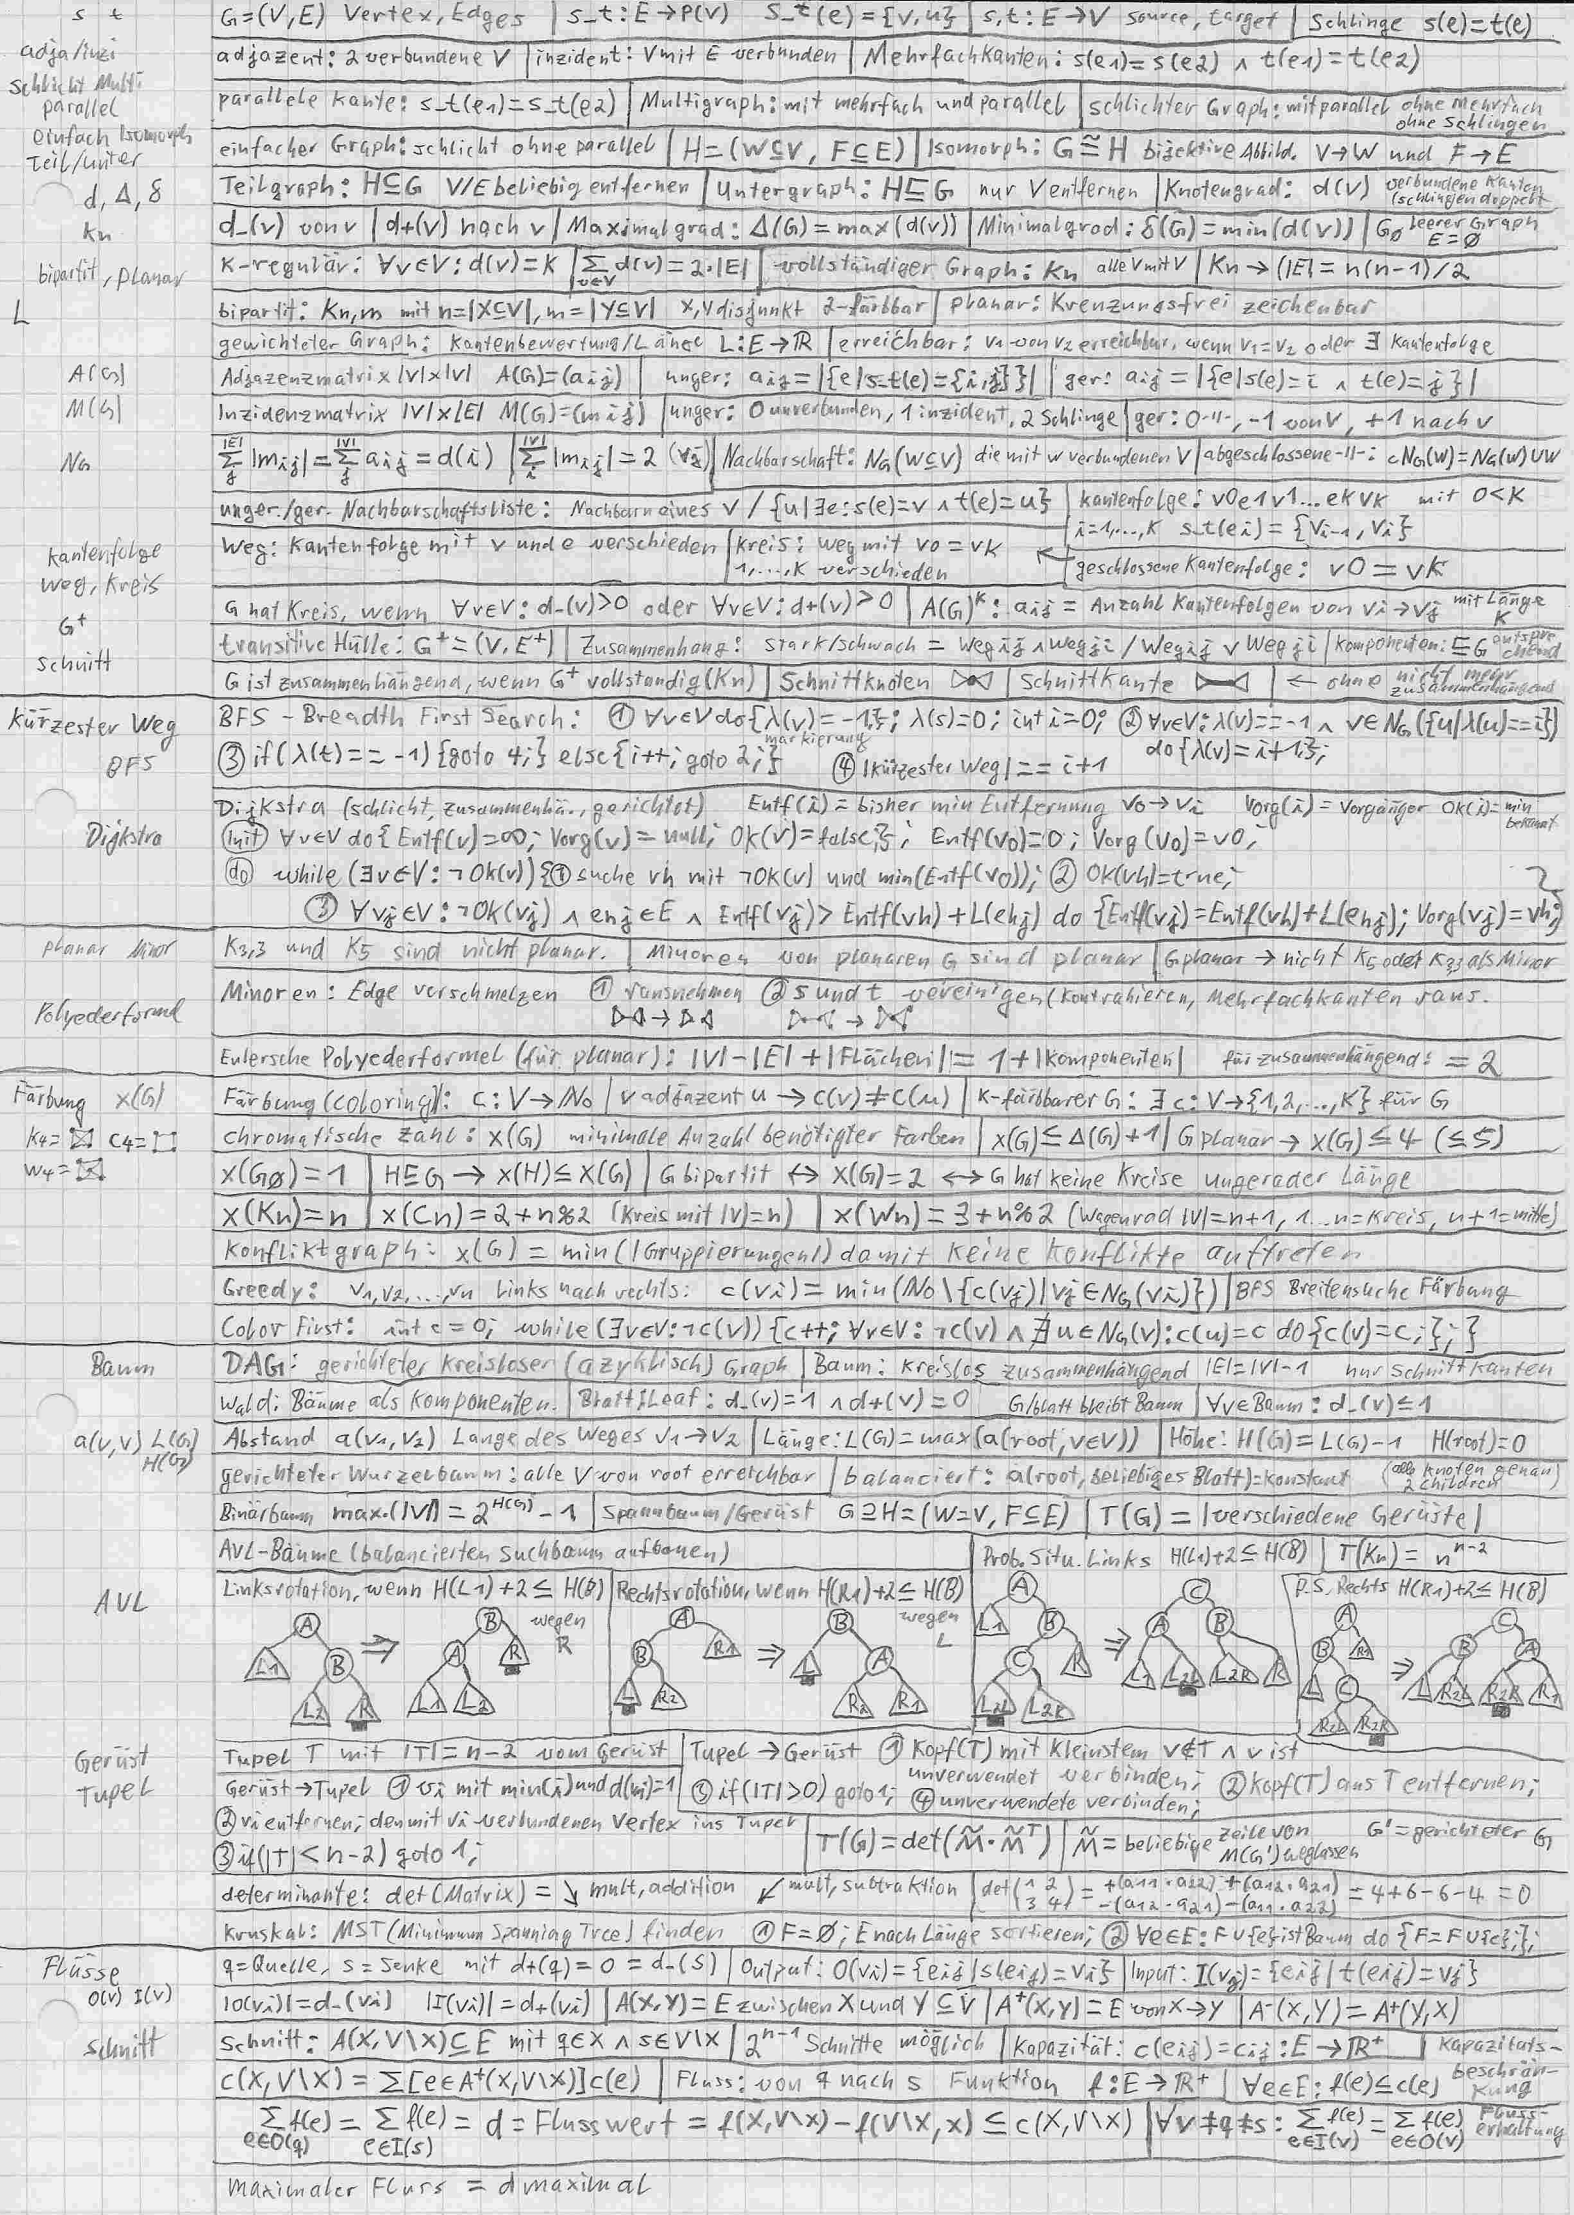 s t G=(V,E) Vertex, Edges | s_t: E→P(V) s_t(e)={v,u} | s,t: E→V source, target | Schlinge s(e)=t(e)
adja/inzi adjazent: 2 verbundene V | inzident: V mit E verbunden | Mehrfachkanten: s(e1)=s(e2) ∧ t(e1)=t(e2)
schlicht Multi
parallel parallele Kante: s_t(e1)=s_t(e2) | Multigraph: mit mehrfach und parallel | schlichter Graph: mit parallel ohne mehrfach ohne Schlingen
einfach Isomorph einfacher Graph: schlicht ohne parallel | H=(W⊆V, F⊆E) | Isomorph: G≅H bijektive Abbild. V→W und F→E
Teil/Unter Teilgraph: H⊆G V/E beliebig entfernen | Untergraph: H⊑G nur V entfernen | Knotengrad: d(v) verbundene Kanten (schlingen doppelt
d, Δ, δ d_(v) von v | d+(v) nach v | Maximalgrad: Δ(G)=max(d(v)) | Minimalgrad: δ(G)=min(d(v)) | G∅ leerer Graph E=∅
Kn K-regulär: ∀v∈V: d(v)=K | ∑ v∈V d(v)=2·|E| | vollständiger Graph: Kn alle V mit V | Kn→(|E|=n(n-1)/2
bipartit, planar bipartit: Kn,m mit n=|X⊆V|, m=|Y⊆V| X,Y disjunkt 2-färbbar | planar: Kreuzungsfrei zeichenbar
L gewichteter Graph: Kantenbewertung/Länge L: E→ℝ | erreichbar: v1 von v2 erreichbar, wenn v1=v2 oder ∃ Kantenfolge
A(G) Adjazenzmatrix |V|x|V| A(G)=(aij) | unger: aij=|{e|s_t(e)={i,j}}| | ger: aij=|{e|s(e)=i ∧ t(e)=j}|
M(G) Inzidenzmatrix |V|x|E| M(G)=(mij) | unger: 0 unverbunden, 1 inzident, 2 Schlinge | ger: 0-"-, -1 von v, +1 nach v
NG |E| ∑ j |mij| = |V| ∑ j aij = d(i) | |V| ∑ i |mij| = 2 (∀j) | Nachbarschaft: NG(W⊆V) die mit W verbundenen V | abgeschlossene -"-: cNG(W)=NG(W)∪W
unger./ger. Nachbarschaftsliste: Nachbarn eines V / {u|∃e: s(e)=v ∧ t(e)=u} | Kantenfolge: v0e1v1...ekvk mit 0<K
i=1,...,K s_t(ei)={vi-1, vi}
Kantenfolge Weg: Kantenfolge mit v und e verschieden | Kreis: Weg mit v0=vk 1,...,K verschieden ← geschlossene Kantenfolge: v0=vK
Weg, Kreis G hat Kreis, wenn ∀v∈V: d_(v)>0 oder ∀v∈V: d+(v)>0 | A(G)^K: aij = Anzahl Kantenfolgen von vi→vj mit Länge K
G+ transitive Hülle: G+=(V,E+) | Zusammenhang: stark/schwach = Weg ij ∧ Weg ji / Weg ij ∨ Weg ji | Komponenten: ⊑G entsprechend
Schnitt G ist zusammenhängend, wenn G+ vollständig (Kn) | Schnittknoten | Schnittkante | ← ohne nicht mehr zusammenhängend
Kürzester Weg BFS - Breadth First Search: ① ∀v∈V do{λ(v)=-1;}; λ(s)=0; int i=0; ② ∀v∈V: λ(v)==-1 ∧ v∈NG({u|λ(u)==i})
markierung do{λ(v)=i+1;};
BFS ③ if(λ(t)==-1){goto 4;} else{i++; goto 2;} ④ |kürzester Weg|== i+1
Dijkstra (schlicht, zusammenhä., gerichtet) Entf(i)=bisher min Entfernung v0→vi Vorg(i)=Vorgänger OK(i)=min bekannt
Dijkstra init ∀v∈V do{Entf(v)=∞; Vorg(v)=null; OK(v)=false;}; Entf(v0)=0; Vorg(v0)=v0;
do while(∃v∈V: ¬OK(v)){① suche vh mit ¬OK(v) und min(Entf(v0)); ② OK(vh)=true;
③ ∀vj∈V: ¬OK(vj) ∧ ehj∈E ∧ Entf(vj)>Entf(vh)+L(ehj) do {Entf(vj)=Entf(vh)+L(ehj); Vorg(vj)=vh;}
planar Minor K3,3 und K5 sind nicht planar. | Minoren von planaren G sind planar | G planar → nicht K5 oder K3,3 als Minor
Minoren: Edge verschmelzen ① rausnehmen ② s und t vereinigen (kontrahieren, Mehrfachkanten raus.
Polyederformel Eulersche Polyederformel (für planar): |V|-|E|+|Flächen|=1+|Komponenten| für zusammenhängend: =2
Färbung x(G) Färbung (coloring): c: V→ℕ0 | v adjazent u → c(v)≠c(u) | K-färbbarer G: ∃ c: V→{1,2,...,K} für G
K4= C4= chromatische Zahl: x(G) minimale Anzahl benötigter Farben | x(G)≤Δ(G)+1 | G planar → x(G)≤4 (≤5)
W4= x(G∅)=1 | H⊑G → x(H)≤x(G) | G bipartit ↔ x(G)=2 ↔ G hat keine Kreise ungerader Länge
x(Kn)=n | x(Cn)=2+n%2 (Kreis mit |V|=n) | x(Wn)=3+n%2 (Wagenrad |V|=n+1, 1...n=Kreis, n+1=mitte)
Konfliktgraph: x(G)=min(|Gruppierungen|) damit keine Konflikte auftreten
Greedy: v1,v2,...,vn Links nach rechts: c(vi)=min(ℕ0\{c(vj)|vj∈NG(vi)}) | BFS Breitensuche Färbung
Color First: int c=0; while(∃v∈V: ¬c(v)){c++; ∀v∈V: ¬c(v) ∧ ∄u∈NG(v): c(u)=c do{c(v)=c;};}
Baum DAG: gerichteter kreisloser (azyklisch) Graph | Baum: Kreislos zusammenhängend |E|=|V|-1 nur Schnittkanten
Wald: Bäume als Komponenten. | Blatt/Leaf: d_(v)=1 ∧ d+(v)=0 G\blatt bleibt Baum | ∀v∈Baum: d_(v)≤1
a(v,v) L(G) H(G) Abstand a(v1,v2) Länge des Weges v1→v2 | Länge: L(G)=max(a(root, v∈V)) | Höhe: H(G)=L(G)-1 H(root)=0
gerichteter Wurzelbaum: alle V von root erreichbar | balanciert: a(root, beliebiges Blatt)=konstant (alle Knoten genau 2 children)
Binärbaum max.(|V|)=2^H(G)-1 | Spannbaum/Gerüst G⊇H=(W=V, F⊆E) | T(G)=|verschiedene Gerüste|
AVL-Bäume (balancierten Suchbaum aufbauen) | Prob. Situ. Links H(L1)+2≤H(B) | T(Kn)=n^n-2
AVL Linksrotation, wenn H(L1)+2≤H(B) | Rechtsrotation, wenn H(R1)+2≤H(B) | P.S. Rechts H(R1)+2≤H(B)
wegen R wegen L
A B L1 L2 R ⇒ B A R L1 L2
A B R1 L R2 ⇒ B L A R2 R1
A L1 B C R L2L L2R ⇒ C A B L1 L2L L2R R
A B R1 L C R2L R2R ⇒ C B A L R2L R2R R1
Gerüst Tupel T mit |T|=n-2 vom Gerüst | Tupel→Gerüst ① Kopf(T) mit kleinstem v∉T ∧ v ist unverwendet verbinden; ② Kopf(T) aus T entfernen;
Tupel Gerüst→Tupel ① vi mit min(i) und d(vi)=1 | ③ if(|T|>0) goto 1; ④ unverwendete verbinden;
② vi entfernen, den mit vi verbundenen Vertex ins Tupel
③ if(|T|<n-2) goto 1; | T(G)=det(M̃·M̃ᵀ) | M̃=beliebige Zeile von M(G') weglassen G'=gerichteter G
determinante: det(Matrix)= ↘ mult, addition ↙ mult, subtraktion | det(1 2 3 4)= +(a11·a22)+(a12·a21) -(a12·a21)-(a11·a22) =4+6-6-4=0
Kruskal: MST (Minimum Spanning Tree) finden ① F=∅; E nach Länge sortieren; ② ∀e∈E: F∪{e} ist Baum do {F=F∪{e};};
Flüsse q=Quelle, s=Senke mit d+(q)=0=d_(s) | Output: O(vi)={eij|s(eij)=vi} | Input: I(vj)={eij|t(eij)=vj}
O(v) I(v) |O(vi)|=d_(vi) |I(vi)|=d+(vi) | A(X,Y)=E zwischen X und Y⊆V | A+(X,Y)=E von X→Y | A-(X,Y)=A+(Y,X)
Schnitt Schnitt: A(X,V\X)⊆E mit q∈X ∧ s∈V\X | 2^n-1 Schnitte möglich | Kapazität: c(eij)=cij: E→ℝ+ |
c(X,V\X)=∑[e∈A+(X,V\X)]c(e) | Fluss: von q nach s Funktion f: E→ℝ+ | ∀e∈E: f(e)≤c(e) Kapazitätsbeschränkung
∑ e∈O(q) f(e) = ∑ e∈I(s) f(e) = d = Flusswert = f(X,V\X)-f(V\X,X) ≤ c(X,V\X) | ∀v≠q≠s: ∑ e∈I(v) f(e) = ∑ e∈O(v) f(e) Flusserhaltung
maximaler Fluss = d maximal